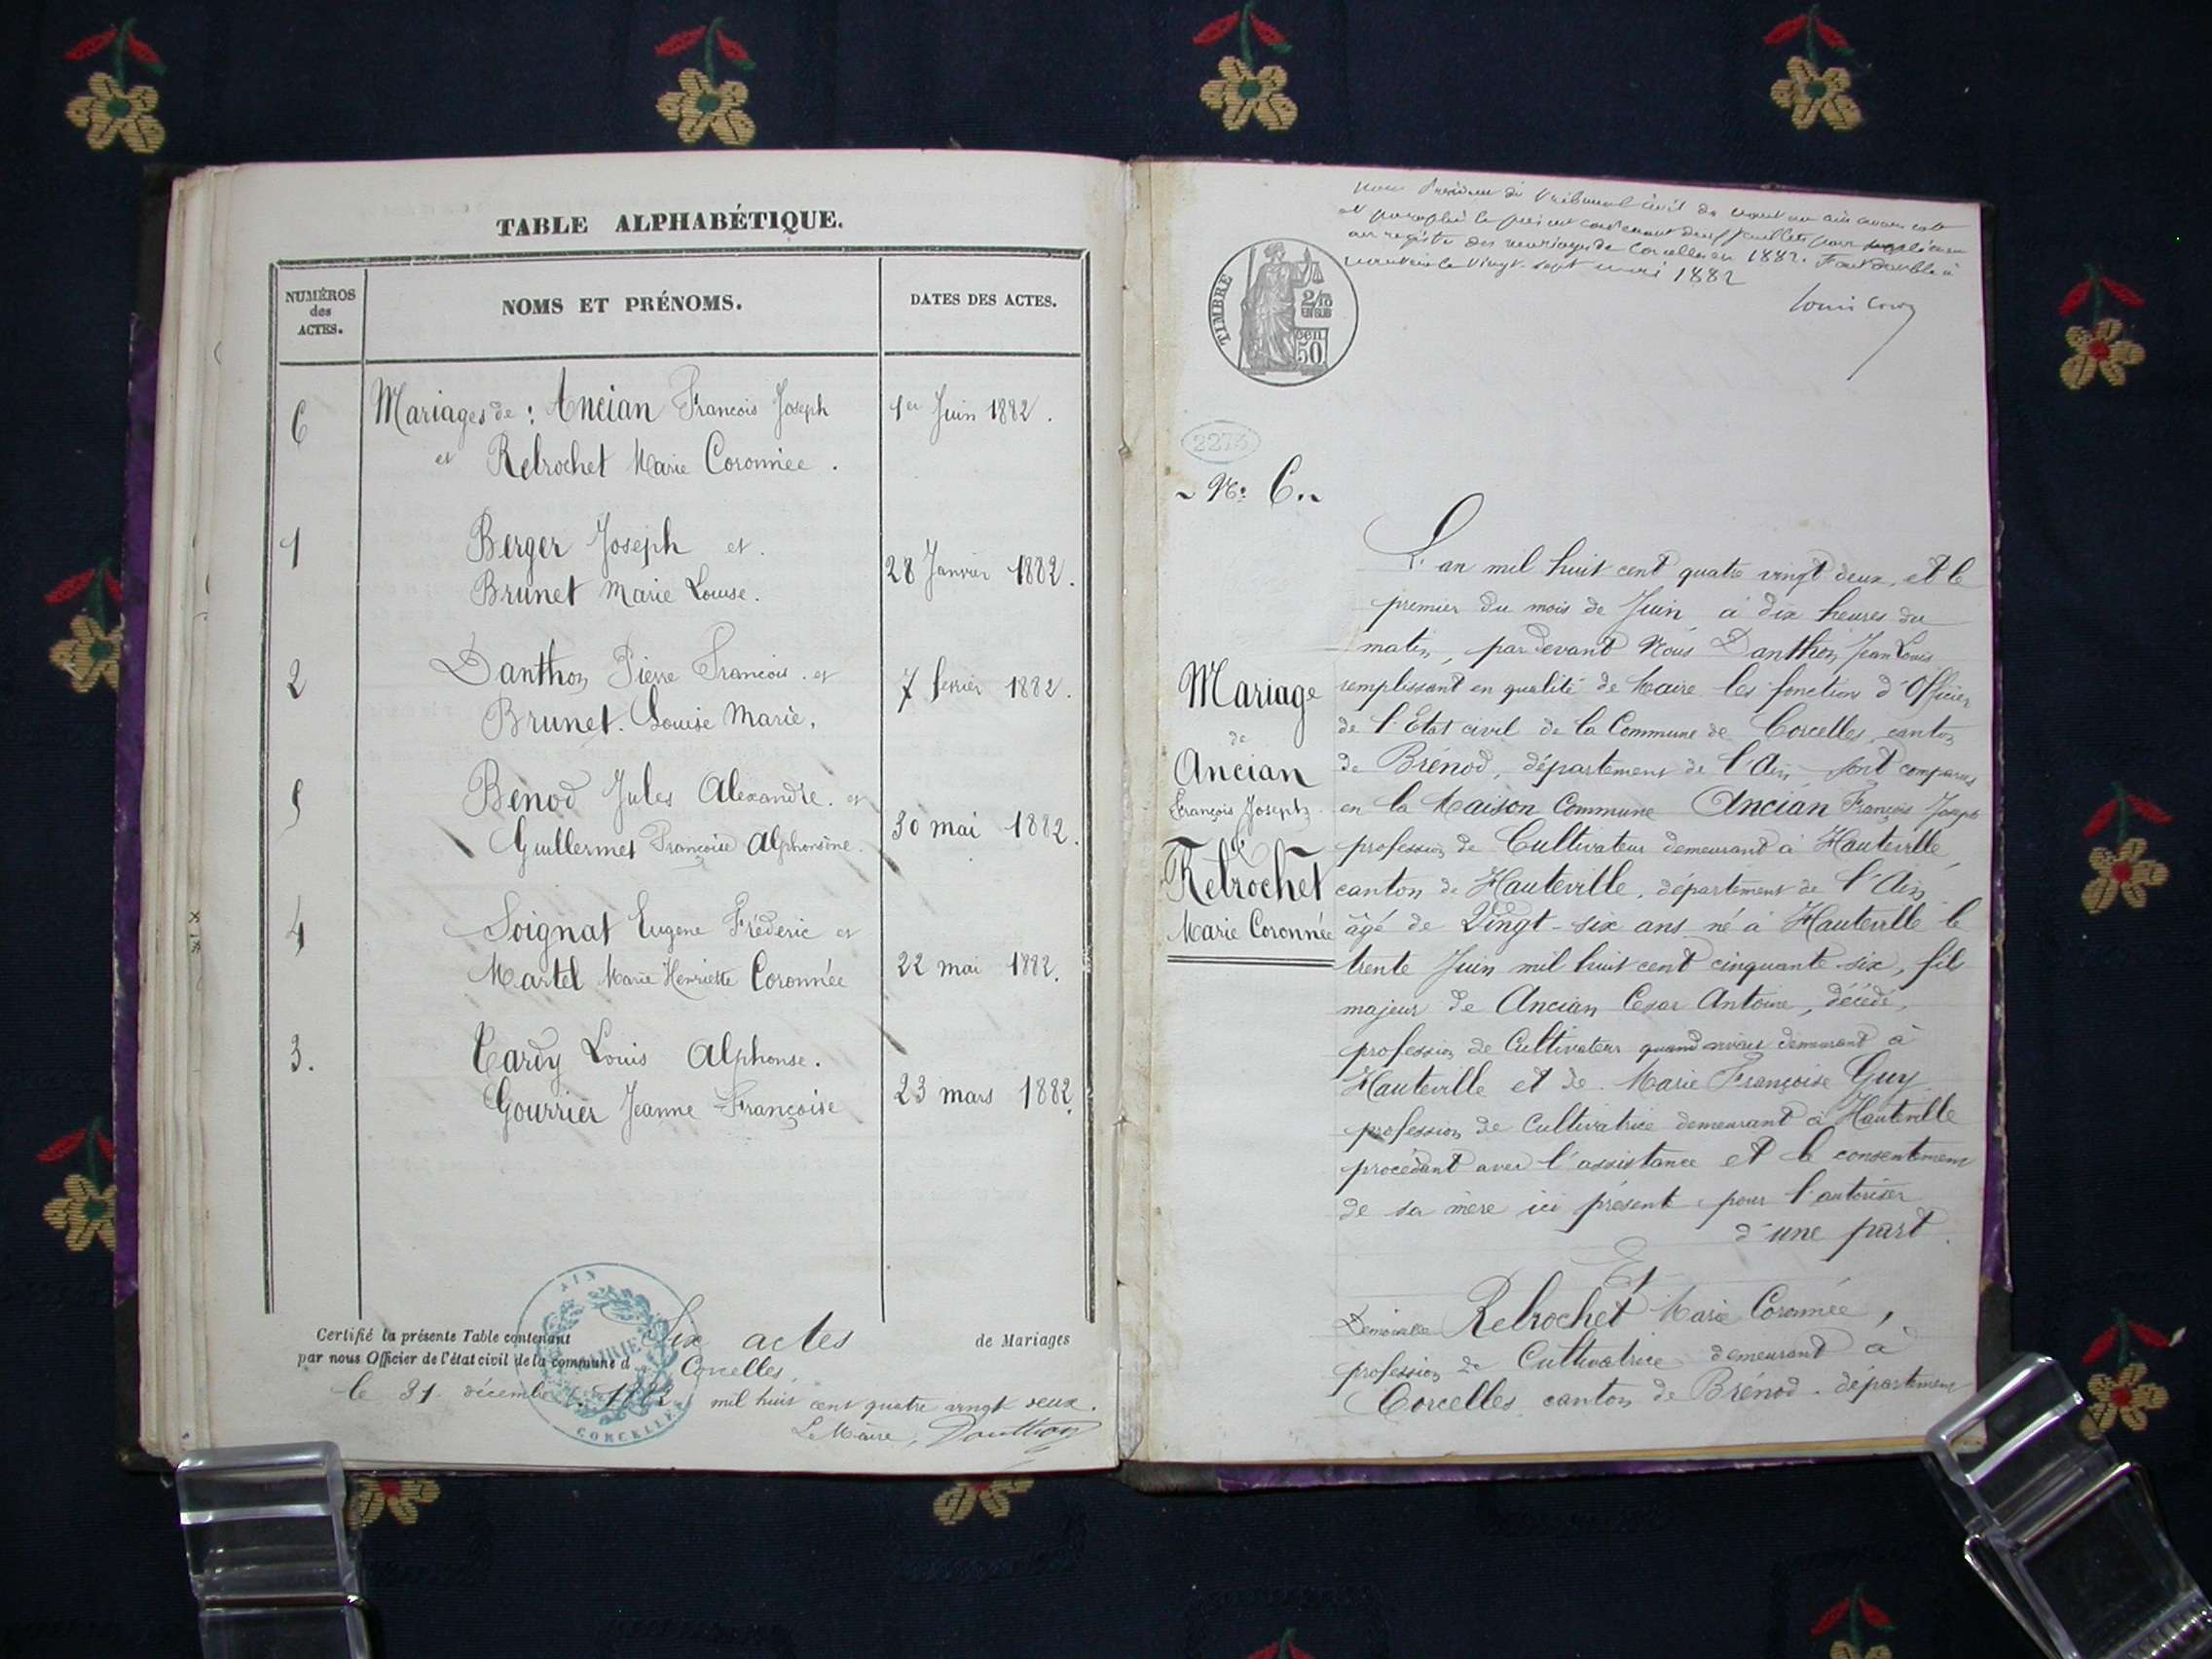 TABLE ALPHABÉTIQUE.
NUMÉROS
des
ACTES.
NOMS ET PRÉNOMS.
DATES DES ACTES.
6 Mariages de : Ancian François Joseph 1er Juin 1882.
et Relrochet Marie Coronnée.
1 Berger Joseph et
Brunet Marie Louise. 28 Janvier 1882.
2 Danthon Pierre François. et 7 fevrier 1882.
Brunet. Louise Marie.
5 Benod Jules Alexandre. et
Guillermet Françoise Alphonsine. 30 mai 1882.
4 Soignat Eugene Fréderic et
Martel Marie Henriette Coronnée 22 mai 1882.
3. Tardy Louis Alphonse.
Gourrier Jeanne Françoise 23 mars 1882.
Certifié la présente Table contenant Six actes de Mariages
par nous Officier de l'état civil de la commune d Corcelles,
le 31 décembre 1882 mil huit cent quatre vingt deux.
Le Maire, Danthon
AIN
MAIRIE
CORCELLES
Nous Président du Tribunal civil de
et paraphé le présent contenant deux feuillets pour
au registre des mariages de Corcelles en 1882. Fait double à
le Vingt-sept mai 1882
Louis
TIMBRE
2/10
EN SUS
50
2273
N° 6.
L'an mil huit cent quatre vingt deux, et le
premier du mois de Juin à dix heures du
matin, par devant Nous Danthon Jean Louis
remplissant en qualité de Maire les fonction d'Officier
de l'Etat civil de la Commune de Corcelles, canton
de Brénod, département de l'Ain sont comparus
en la Maison Commune Ancian François Joseph
profession de Cultivateur demeurant à Hauteville,
canton de Hauteville, département de l'Ain
âgé de Vingt-six ans né à Hauteville le
trente Juin mil huit cent cinquante-six, fils
majeur de Ancian Cesar Antoine, décédé,
profession de Cultivateur quand vivait demeurant à
Hauteville et de Marie Françoise Guy
profession de Cultivatrice demeurant à Hauteville
procédant avec l'assistance et le consentement
de sa mère ici présent pour l'autoriser
d'une part.
Et
Demoiselle Relrochet Marie Coronnée,
profession de Cultivatrice demeurant à
Corcelles canton de Brénod. département
Mariage
de
Ancian
François Joseph
&
Relrochet
Marie Coronnée